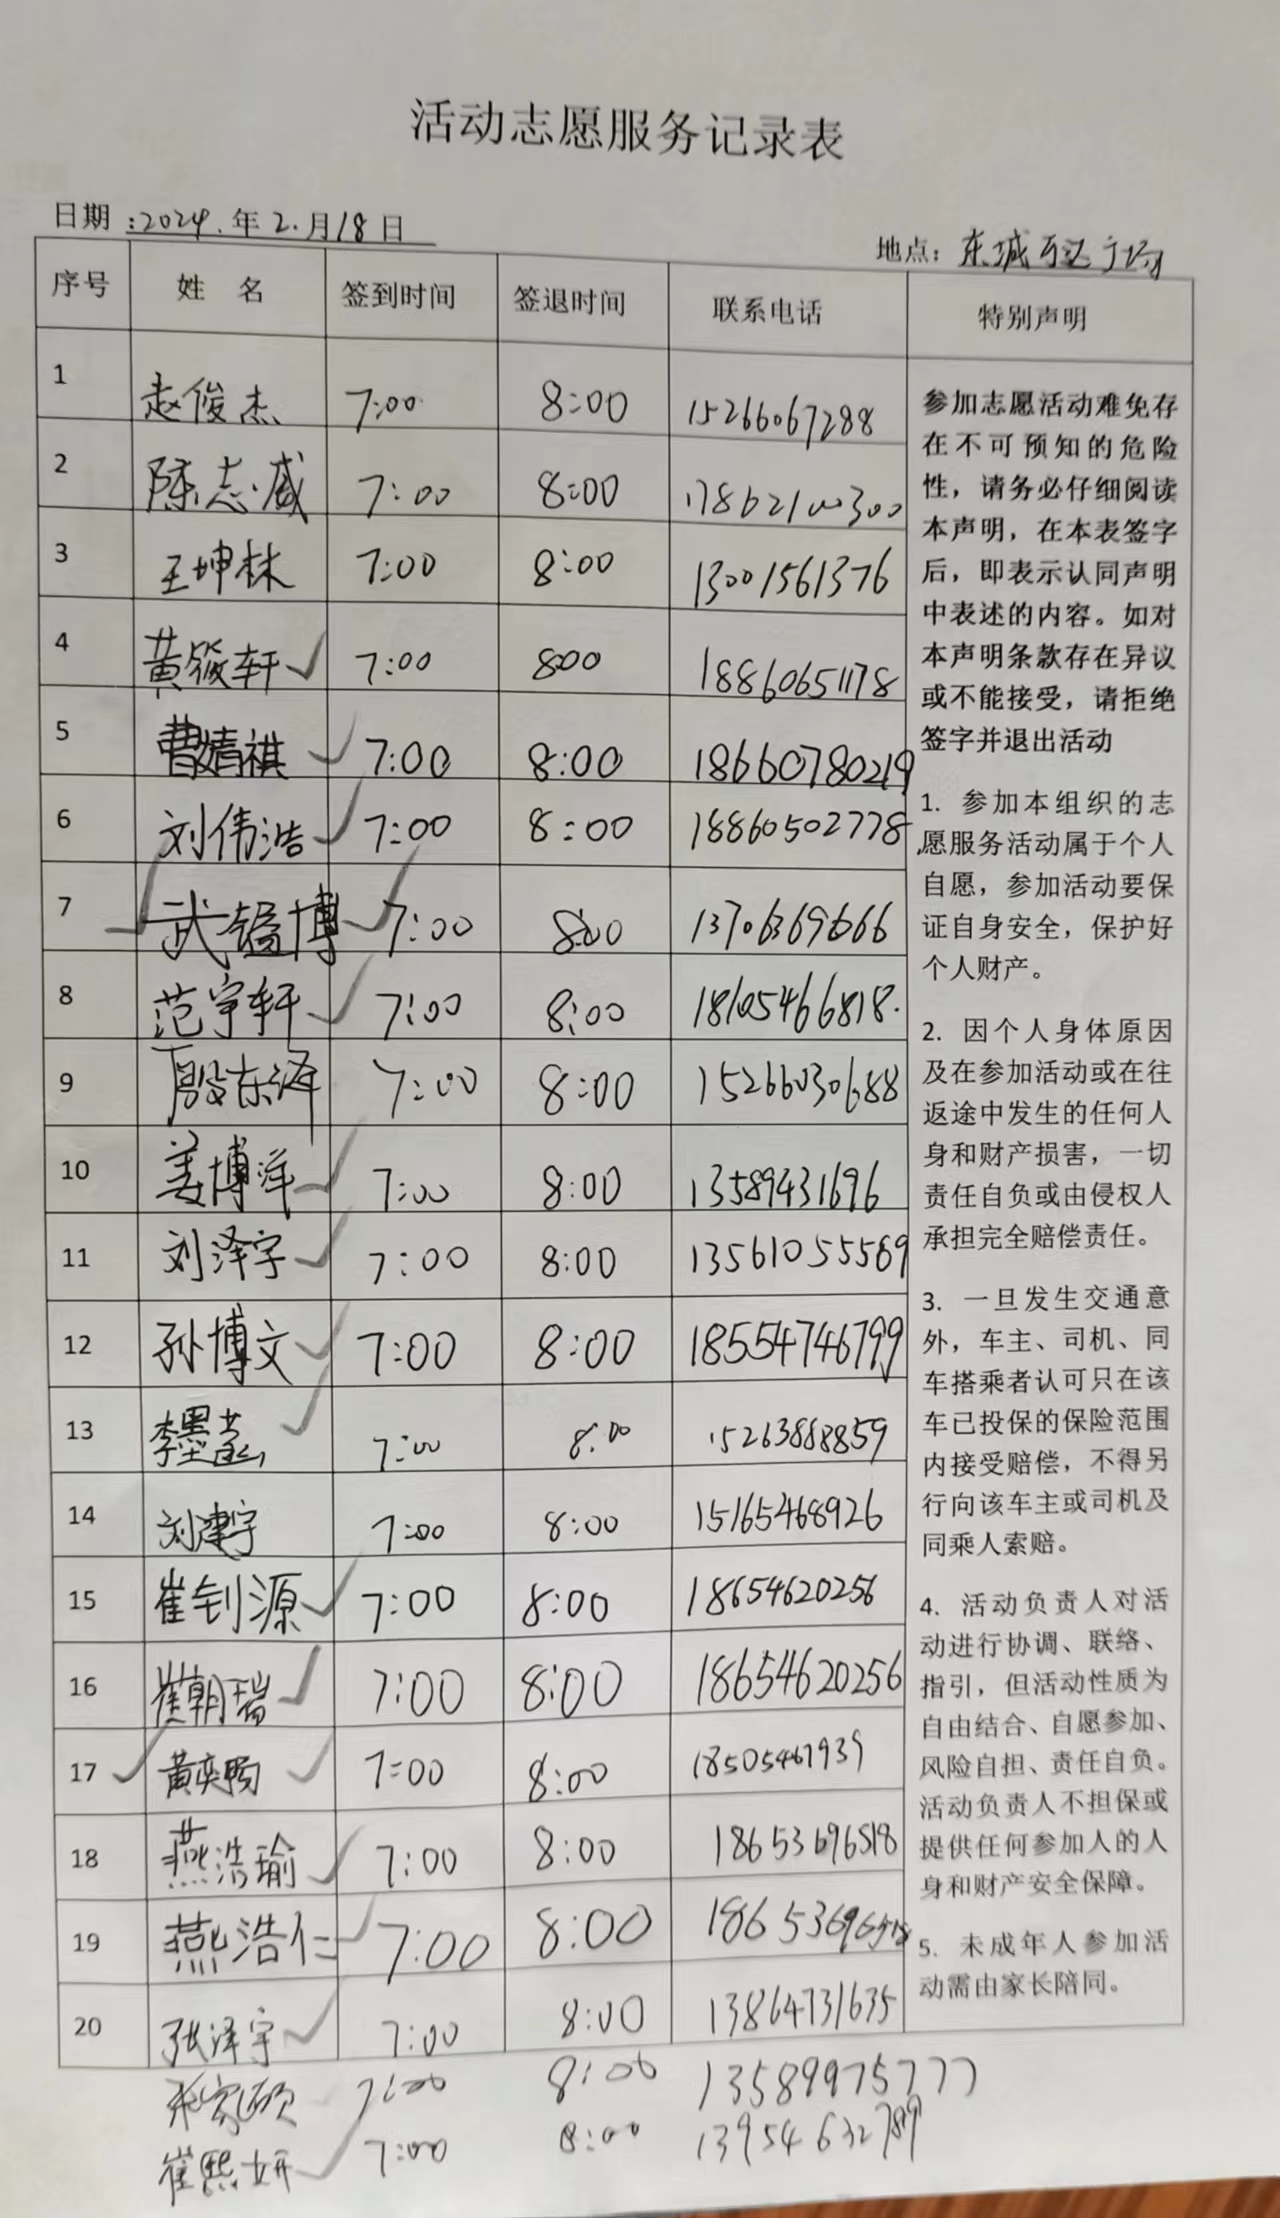 活动志愿服务记录表
日期:2024.年2.月18日
地点:东城万达广场
序号 姓名 签到时间 签退时间 联系电话 特别声明
1 赵俊杰 7:00 8:00 15266067288
2 陈志威 7:00 8:00 17862100300
3 王坤林 7:00 8:00 13001561376
4 黄筱轩 7:00 800 18860651178
5 曹婧祺 7:00 8:00 18660780219
6 刘伟浩 7:00 8:00 18860502778
7 武镒博 7:00 8:00 13706369666
8 范宇轩 7:00 8:00 18105466818.
9 殷东泽 7:00 8:00 15266030688
10 姜博洋 7:00 8:00 13589431696
11 刘泽宇 7:00 8:00 13561055569
12 孙博文 7:00 8:00 18554746799
13 李墨 7:00 8:00 15263888859
14 刘津宇 7:00 8:00 15165468926
15 崔钊源 7:00 8:00 18654620256
16 崔朝瑞 7:00 8:00 18654620256
17 黄奕畅 7:00 8:00 18505467939
18 燕浩瑜 7:00 8:00 18653696518
19 燕浩仁 7:00 8:00 18653696518
20 张泽宇 7:00 8:00 13864731635
家硕 7:00 8:00 13589975777
崔熙妍 7:00 8:00 13954632789
参加志愿活动难免存
在不可预知的危险
性，请务必仔细阅读
本声明，在本表签字
后，即表示认同声明
中表述的内容。如对
本声明条款存在异议
或不能接受，请拒绝
签字并退出活动
1. 参加本组织的志
愿服务活动属于个人
自愿，参加活动要保
证自身安全，保护好
个人财产。
2. 因个人身体原因
及在参加活动或在往
返途中发生的任何人
身和财产损害，一切
责任自负或由侵权人
承担完全赔偿责任。
3. 一旦发生交通意
外，车主、司机、同
车搭乘者认可只在该
车已投保的保险范围
内接受赔偿，不得另
行向该车主或司机及
同乘人索赔。
4. 活动负责人对活
动进行协调、联络、
指引，但活动性质为
自由结合、自愿参加、
风险自担、责任自负。
活动负责人不担保或
提供任何参加人的人
身和财产安全保障。
5. 未成年人参加活
动需由家长陪同。